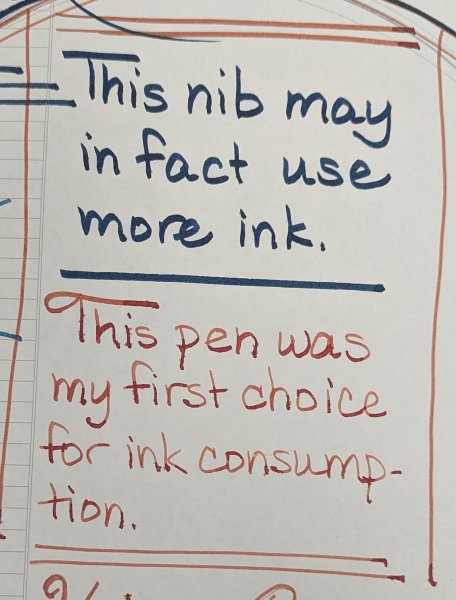 This nib may
in fact use
more ink.
This pen was
my first choice
for ink consump-
tion.